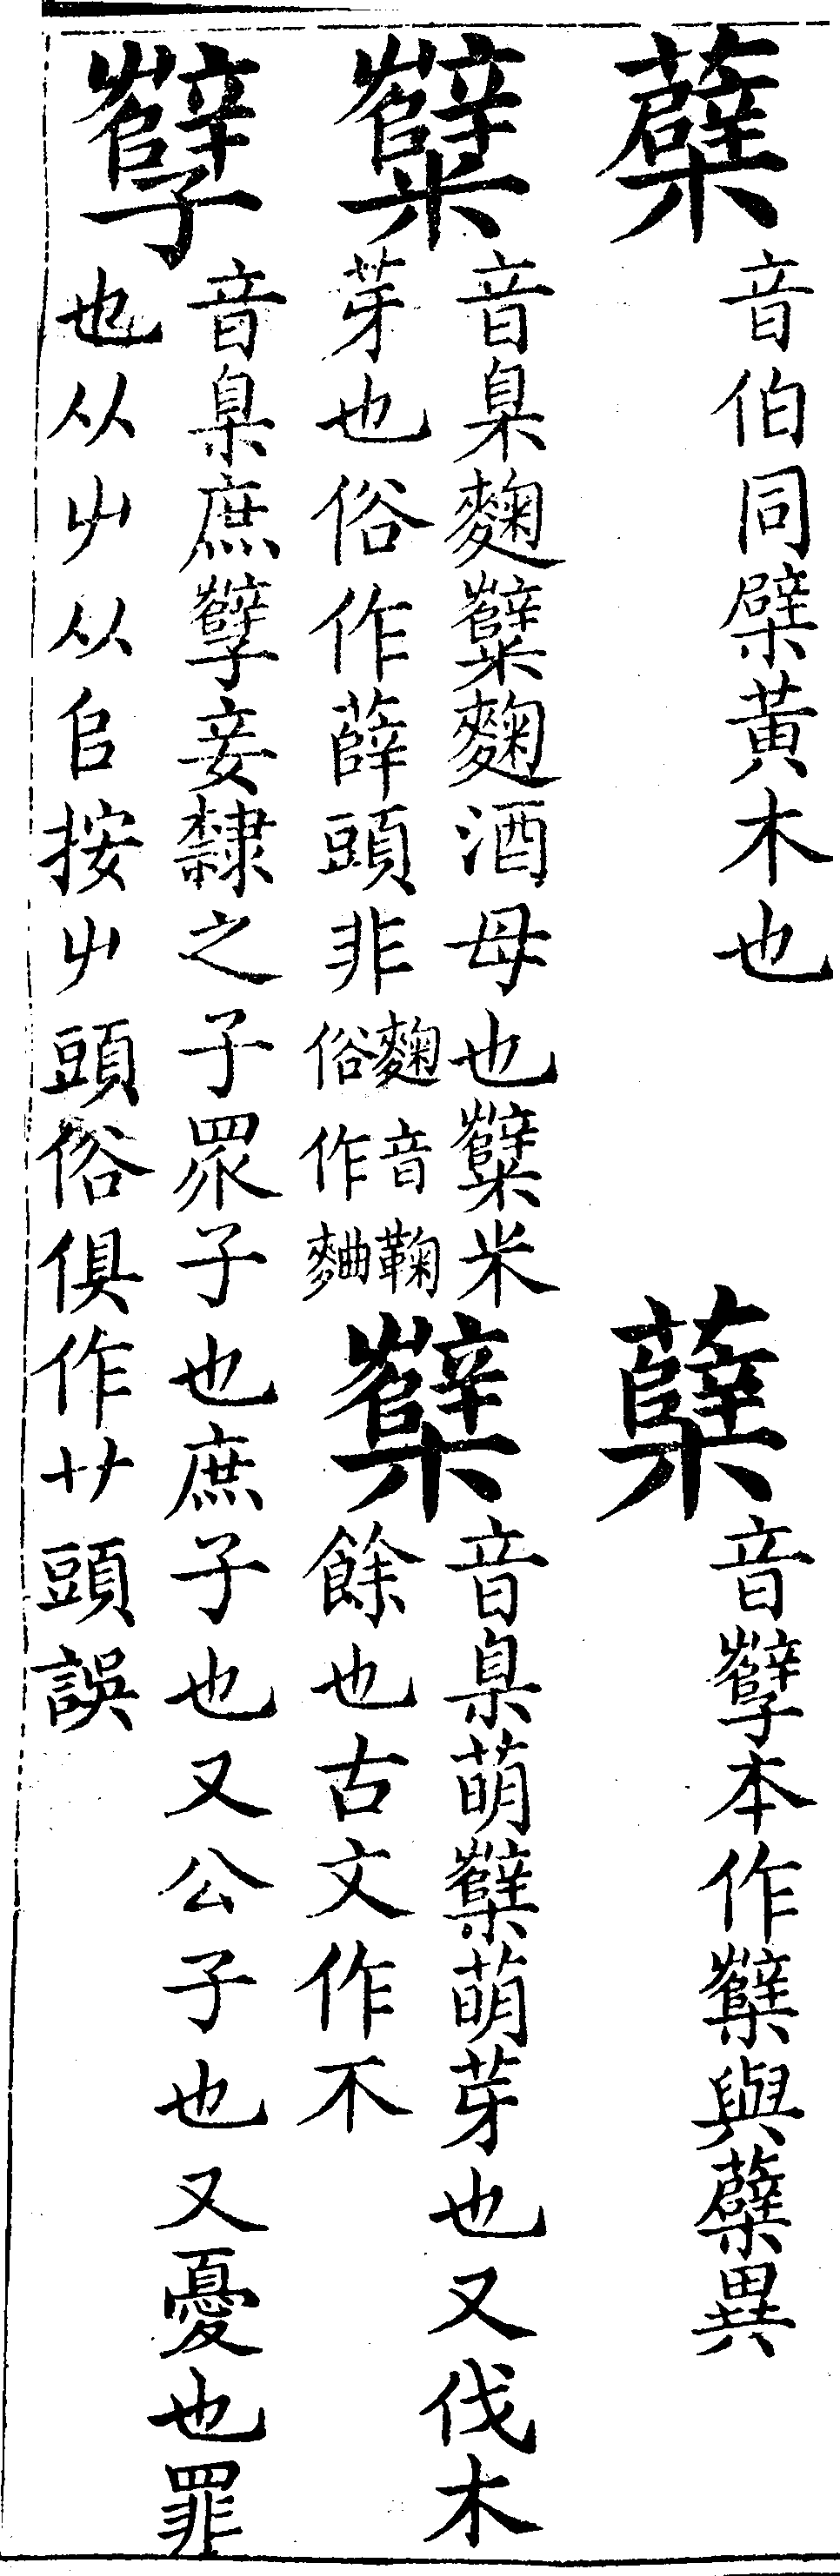 蘗 音伯同檗黃木也
蘖 音孽本作櫱與蘗異
糱 音臬麴糱麴酒母也糱米
芽也俗作薛頭非麴音鞠俗作麯
櫱 音臬萌櫱萌芽也又伐木
餘也古文作不
孽 音臬庶孽妾隸之子眾子也庶子也又公子也又憂也罪
也从屮从㠯按屮頭俗俱作艹頭誤